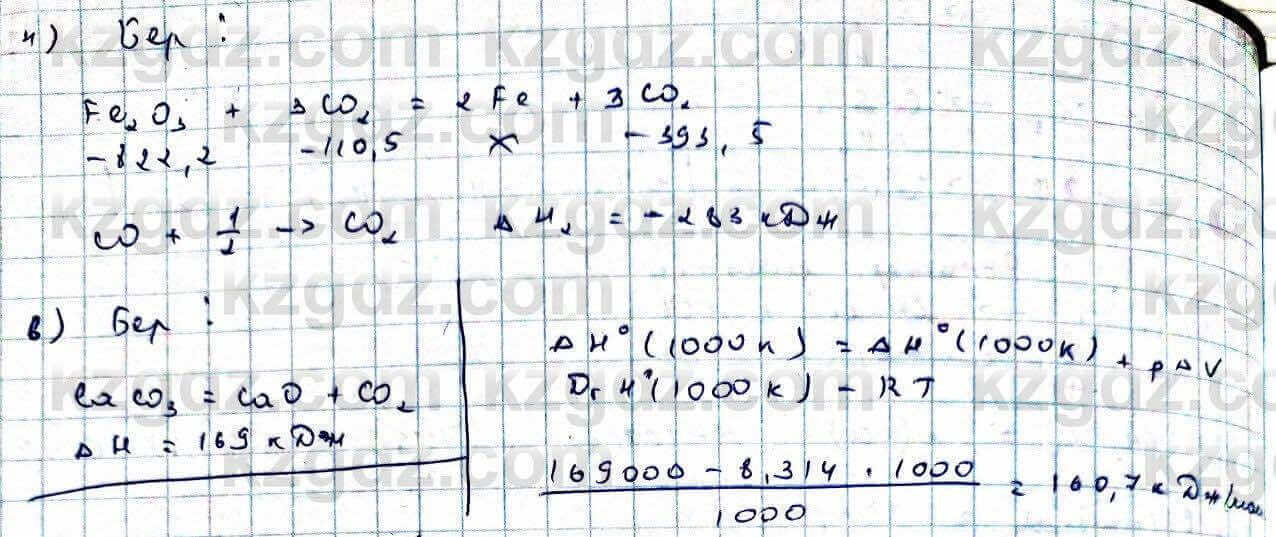 4) Бер:
Fe₂O₃ + 3CO₂ = 2Fe + 3CO₂
-822,2 -110,5 x -393,5
CO + 1/2 -> CO₂ ΔH₂ = -283 кДж
6) Бер:
CaCO₃ = CaO + CO₂
ΔH = 169 кДж
ΔH°(1000К) = ΔH°(1000К) + pΔV
DrH°(1000К) - RT
169000 - 8,314 · 1000 / 1000 = 160,7 кДж/мол
kzgdz.com